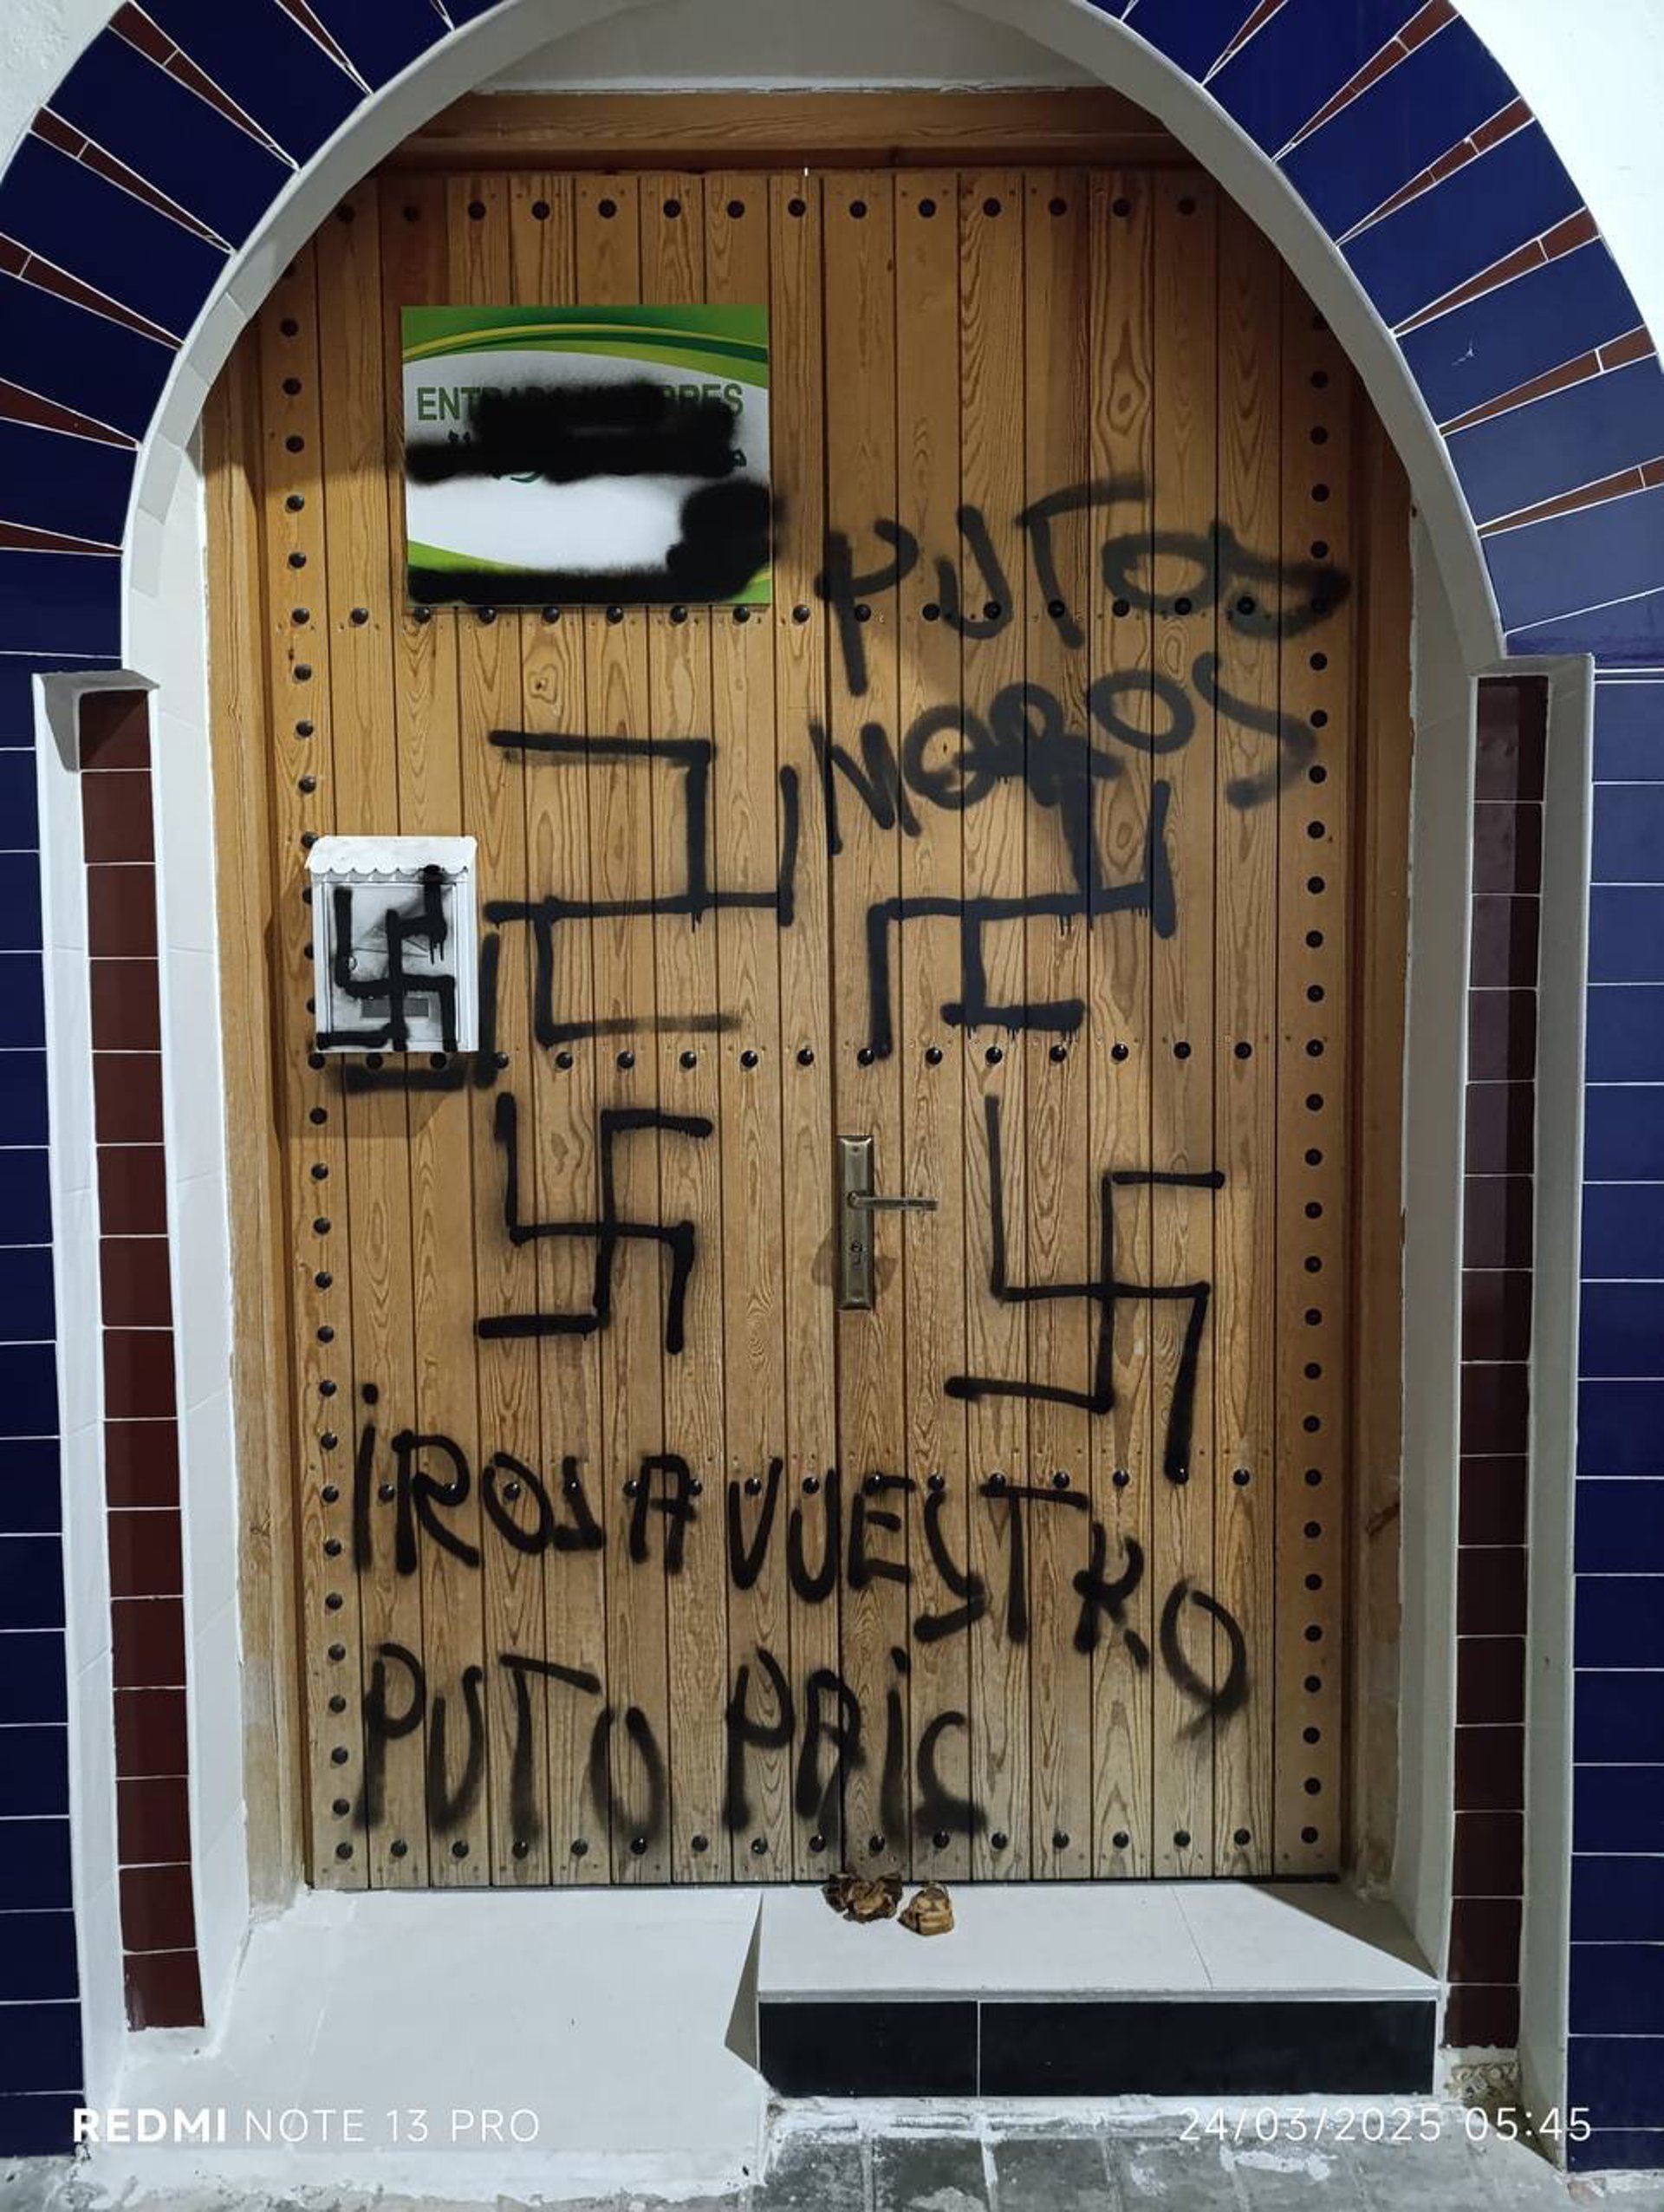 PUTOS
MOROS
IROS A VUESTRO
PUTO PAIS
REDMI NOTE 13 PRO
24/03/2025 05:45